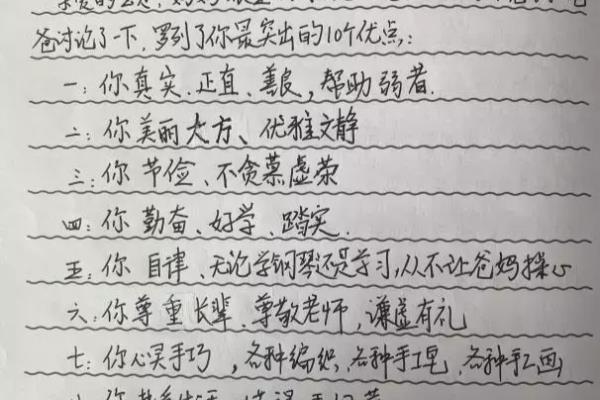 爸讨论了一下,罗列了你最突出的10个优点:
一:你真实、正直、善良,帮助弱者.
二:你美丽大方、优雅文静
三:你 节俭、不贪慕虚荣
四:你 勤奋、好学、踏实.
五:你 自律、无论学钢琴还是学习,从不让爸妈操心
六:你尊重长辈、尊敬老师,谦虚有礼
七:你心灵手巧,各种编织、各种手工、各种手工画